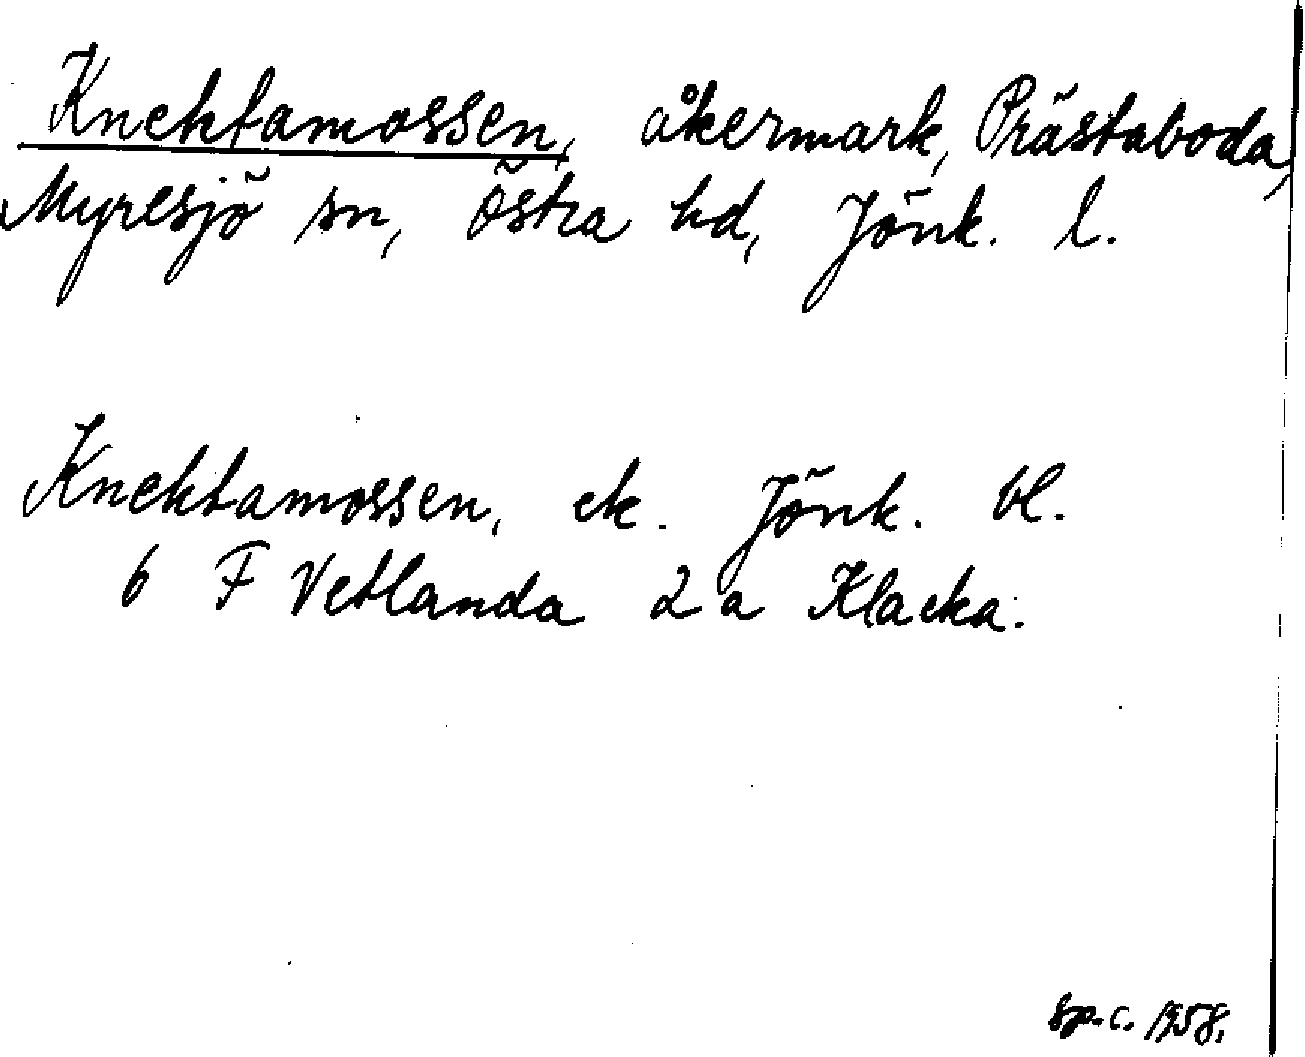 Knektamossen, åkermark, Prästaboda,
Myresjö sn, Östra hd, Jönk. l.
Knektamossen, ek. Jönk. bl.
6 F Vetlanda 2 a Klacka.
Sp. c. 1958.